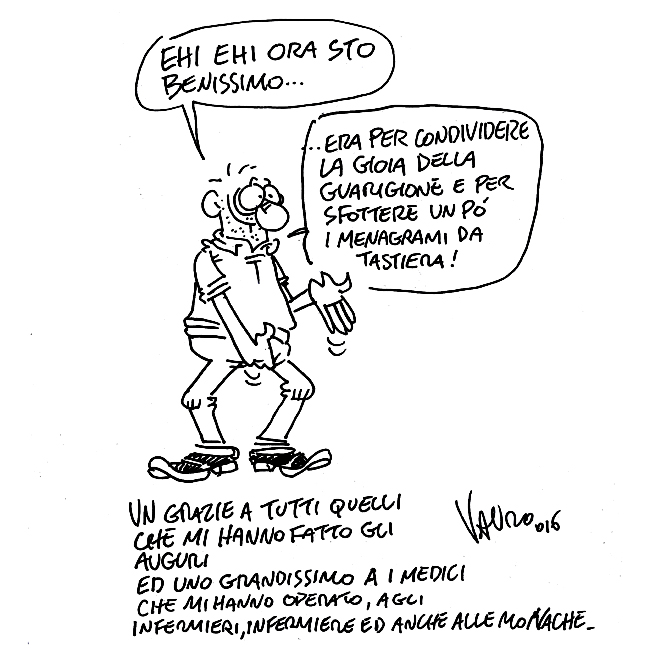 EHI EHI ORA STO
BENISSIMO...
...ERA PER CONDIVIDERE
LA GIOIA DELLA
GUARIGIONE E PER
SFOTTERE UN PÓ
I MENAGRAMI DA
TASTIERA!
UN GRAZIE A TUTTI QUELLI
CHE MI HANNO FATTO GLI
AUGURI
ED UNO GRANDISSIMO A I MEDICI
CHE MI HANNO OPERATO, AGLI
INFERMIERI, INFERMIERE ED ANCHE ALLE MONACHE_
VAURO 016